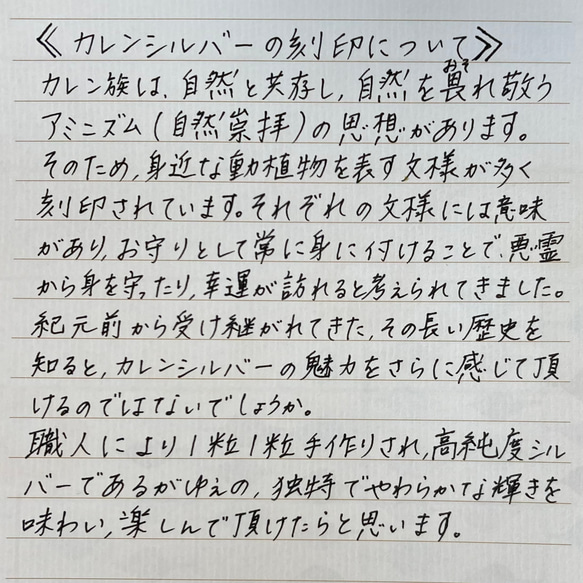 ≪カレンシルバーの刻印について≫
カレン族は、自然と共存し、自然を畏れ敬う
おそ
アミニズム(自然崇拝)の思想があります。
そのため、身近な動植物を表す文様が多く
刻印されています。それぞれの文様には意味
があり、お守りとして常に身に付けることで、悪霊
から身を守ったり、幸運が訪れると考えられてきました。
紀元前から受け継がれてきた、その長い歴史を
知ると、カレンシルバーの魅力をさらに感じて頂
けるのではないでしょうか。
職人により1粒1粒手作りされ、高純度シル
バーであるがゆえの、独特でやわらかな輝きを
味わい、楽しんで頂けたらと思います。